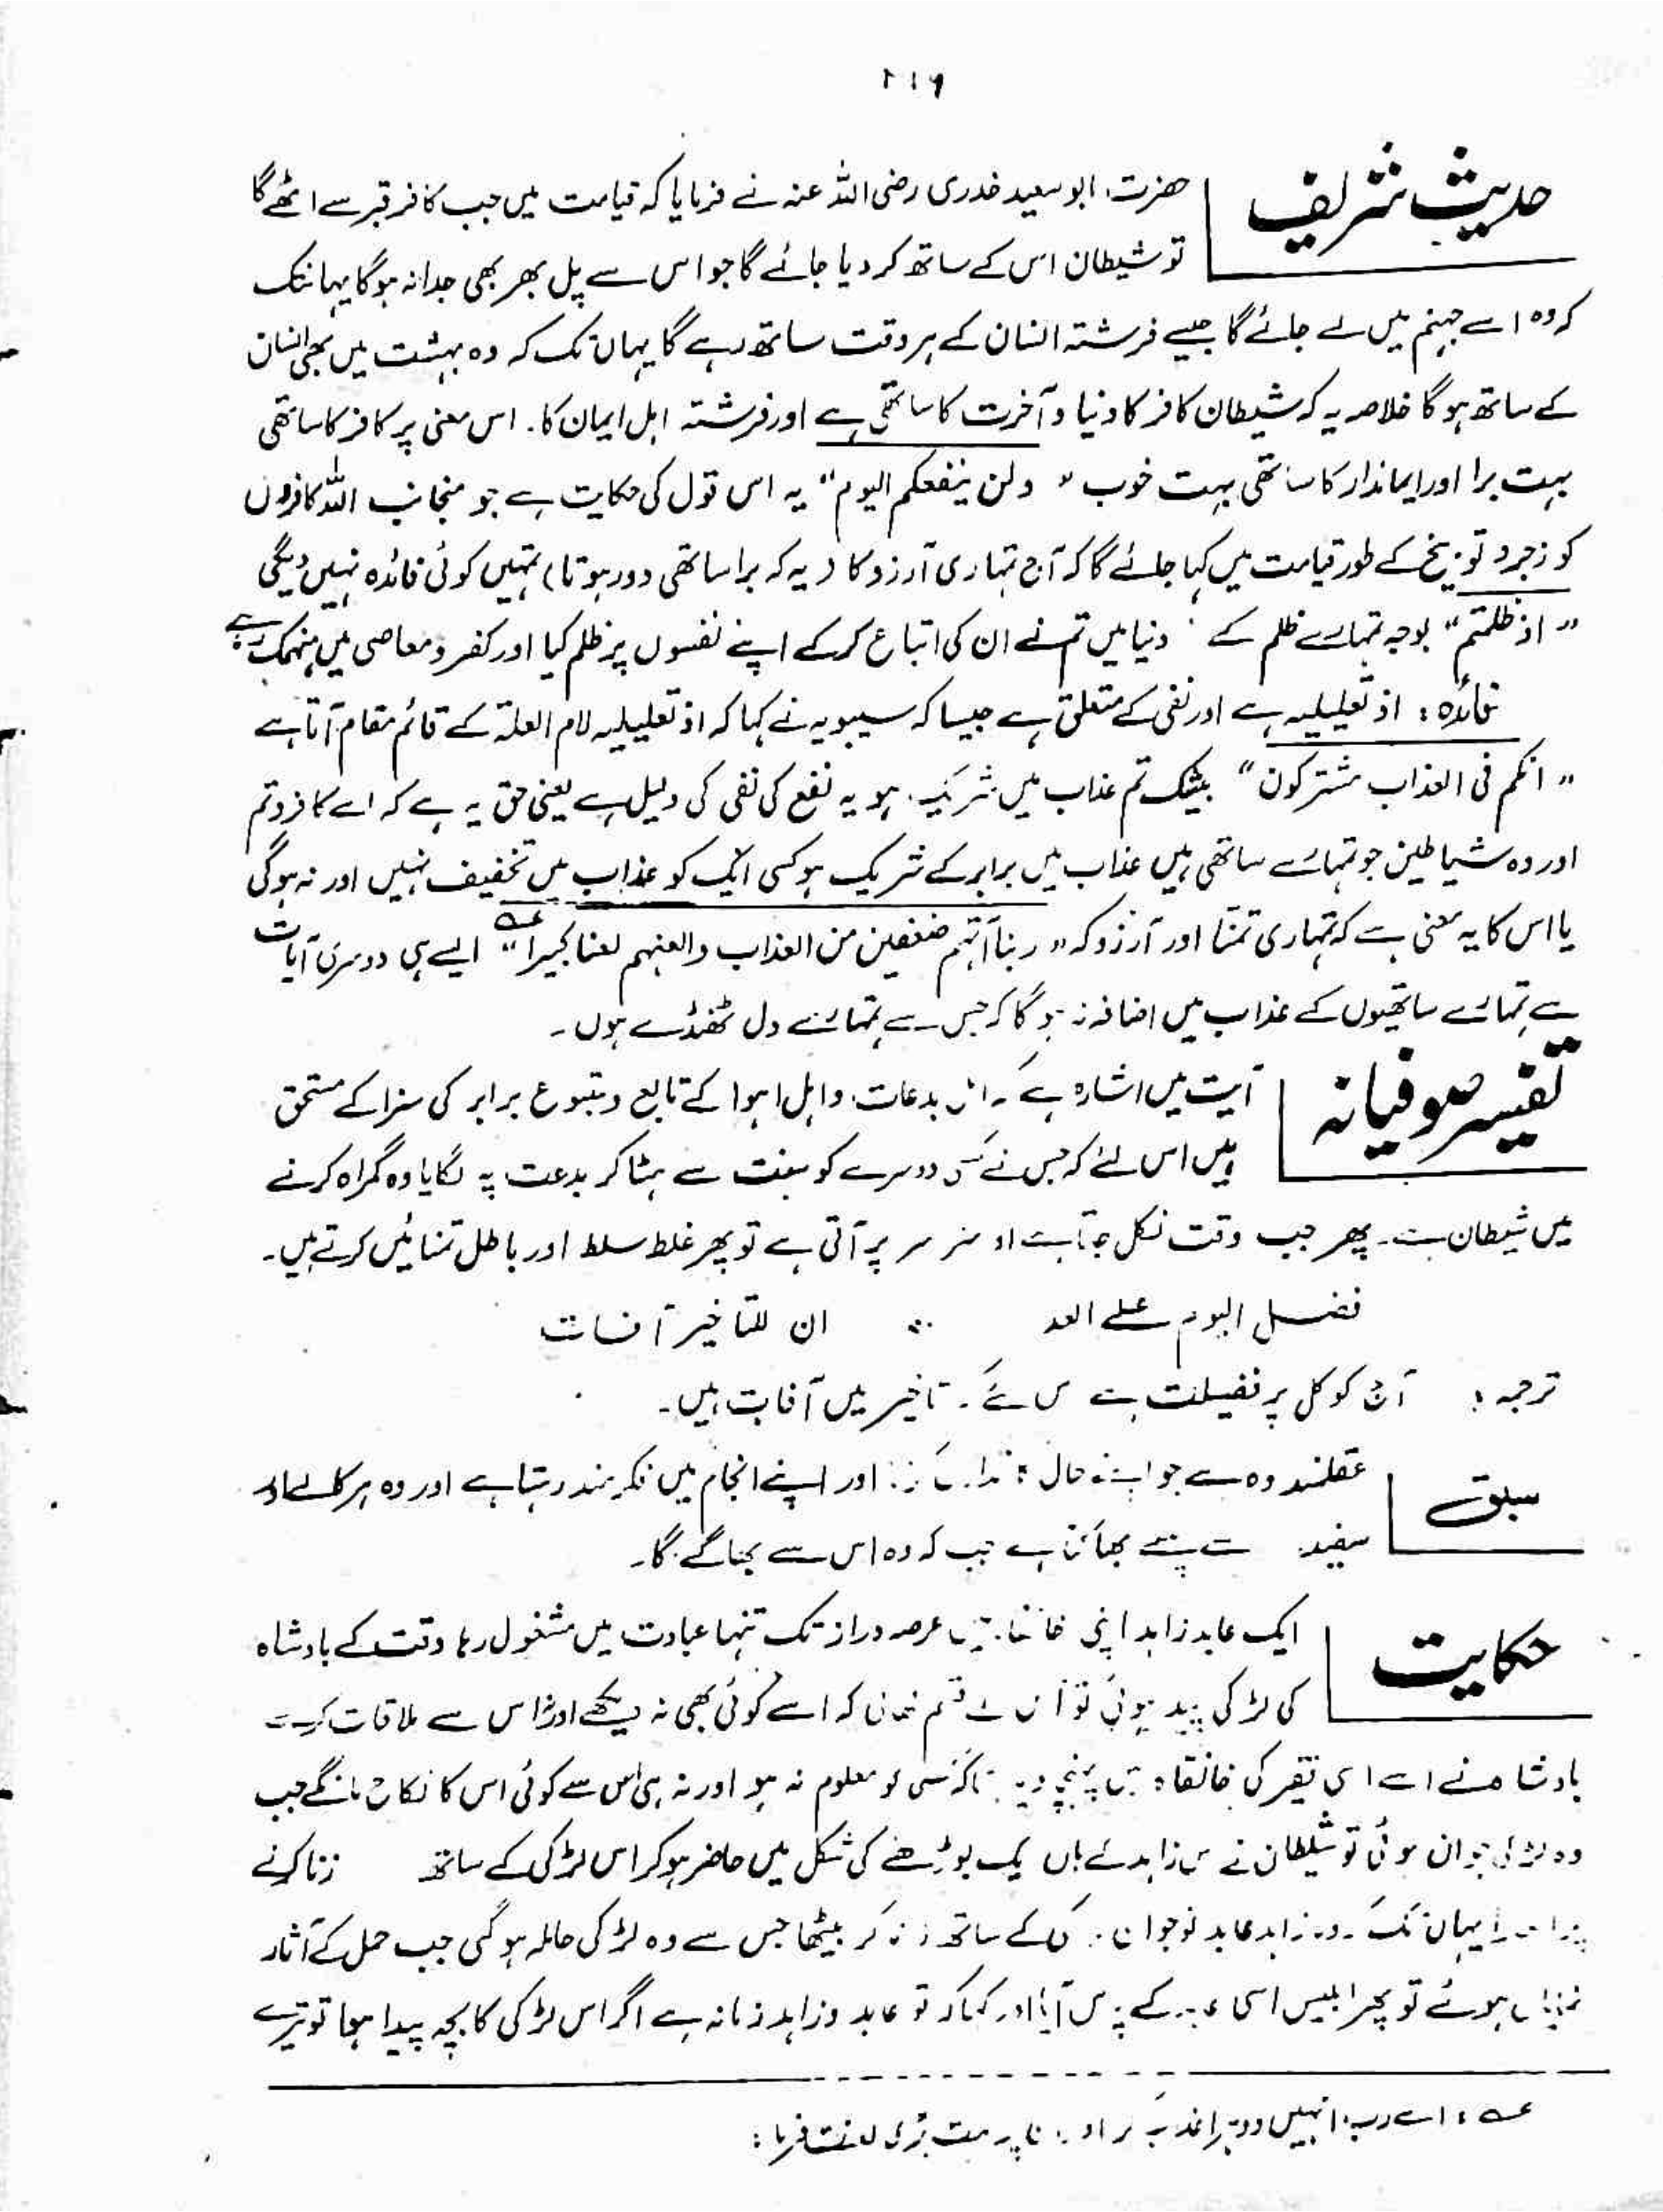 ۲۱۹
حدیث شریف
حضرت ابو سعید خدری رضی اللہ عنہ نے فرمایا کہ قیامت میں جب کافر قبر سے اٹھے گا
تو شیطان اس کے ساتھ کر دیا جائے گا جو اس سے پل بھر بھی جدا نہ ہوگا یہانتک
کہ وہ اسے جہنم میں لے جائے گا جیسے فرشتہ انسان کے ہر وقت ساتھ رہے گا یہاں تک کہ وہ بہشت میں بھی انسان
کے ساتھ ہوگا خلاصہ یہ کہ شیطان کافر کا دنیا و آخرت کا ساتھی ہے اور فرشتہ اہل ایمان کا۔ اس معنی پر کافر کا ساتھی
بہت برا اور ایماندار کا ساتھی بہت خوب " ولن ینفعکم الیوم" یہ اس قول کی حکایت ہے جو منجانب اللہ کافروں
کو زجر و توبیخ کے طور قیامت میں کہا جائے گا کہ آج تمہاری آرزو کا (یہ کہ برا ساتھی دور ہوتا) تمہیں کوئی فائدہ نہیں دیگی
" اذ ظلمتم" بوجہ تمہارے ظلم کے دنیا میں تم نے ان کی اتباع کرکے اپنے نفسوں پر ظلم کیا اور کفر و معاصی میں منہمک رہے
فائدہ : اذ تعلیلیہ ہے اور نفی کے متعلق ہے جیسا کہ سیبویہ نے کہا کہ اذ تعلیلیہ لام العلۃ کے قائم مقام آتا ہے
" انکم فی العذاب مشترکون" بیشک تم عذاب میں شریک ہو یہ نفع کی نفی کی دلیل ہے یعنی حق یہ ہے کہ اے کافرو تم
اور وہ شیاطین جو تمہارے ساتھی ہیں عذاب میں برابر کے شریک ہو کسی ایک کو عذاب میں تخفیف نہیں اور نہ ہوگی
یا اس کا یہ معنی ہے کہ تمہاری تمنا اور آرزو کہ " ربنا آتہم ضعفین من العذاب والعنہم لعنا کبیرا" عہ ایسے ہی دوسری آیات
سے تمہارے ساتھیوں کے عذاب میں اضافہ نہ ہوگا کہ جس سے تمہارے دل ٹھنڈے ہوں۔
تفسیر صوفیانہ
آیت میں اشارہ ہے کہ اہل بدعات و اہل اہوا کے تابع و متبوع برابر کی سزا کے مستحق
ہیں اس لئے کہ جس نے دوسرے کو سنت سے ہٹا کر بدعت پہ لگایا وہ گمراہ کرنے
میں شیطان ہے۔ پھر جب وقت نکل جاتا ہے سر پر آتی ہے تو پھر غلط سلط اور باطل تمنائیں کرتے ہیں۔
فضل الیوم علے الغد ؞ ان للتاخیر آفات
ترجمہ : آج کو کل پر فضیلت ہے تاخیر میں آفات ہیں۔
سبق
عقلمند وہ ہے جو اپنے حال اور اپنے انجام میں فکر مند رہتا ہے اور وہ ہر کالے اور
سفید سے بھاگتا ہے جب کہ وہ اس سے بھاگے گا۔
حکایت
ایک عابد زاہد اپنی خانقاہ میں عرصہ دراز تک تنہا عبادت میں مشغول رہا وقت کے بادشاہ
کی لڑکی پیدا ہوئی تو قسم کہ اسے کوئی بھی نہ دیکھے اور نہ اس سے ملاقات کرے
بادشاہ نے اسے اسی فقیر کی خانقاہ میں تاکہ کسی کو معلوم نہ ہو اور نہ ہی اس سے کوئی اس کا نکاح مانگے جب
وہ لڑکی جوان ہوئی تو شیطان نے اس زاہد کے ہاں ایک بوڑھے کی شکل میں حاضر ہو کر اس لڑکی کے ساتھ زنا کرنے
یہاں تک زاہد عابد نوجوان کے ساتھ زنا کر بیٹھا جس سے وہ لڑکی حاملہ ہوگئی جب حمل کے آثار
نمایاں ہوئے تو پھر ابلیس اسی عابد کے پاس آیا اور کہا کہ تو عابد و زاہد زمانہ ہے اگر اس لڑکی کا بچہ پیدا ہوا تو تیرے
عہ : اے رب انہیں لعنت فرما :